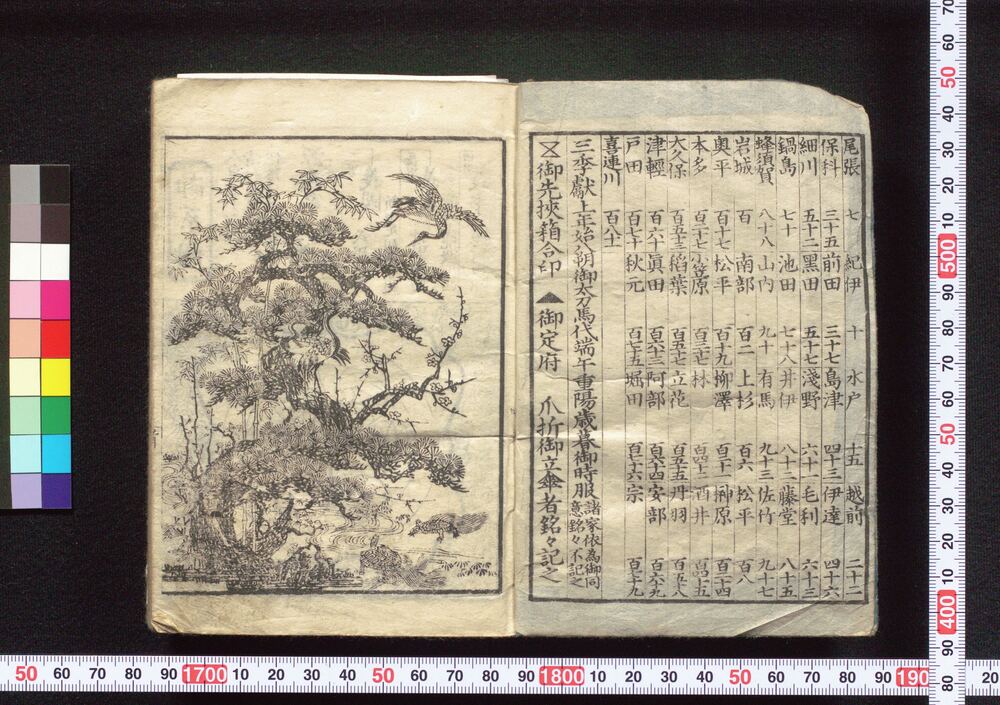 尾張 七 紀伊 十 水戸 十五 越前 二十二
保科 三十五 前田 三十七 島津 四十三 伊達 四十六
細川 五十二 黒田 五十七 淺野 六十一 毛利 六十三
鍋島 七十 池田 七十八 井伊 八十二 藤堂 八十五
蜂須賀 八十八 山内 九十 有馬 九十三 佐竹 九十七
岩城 百 南部 百二 上杉 百六 松平 百八
奥平 百十七 松平 百十九 柳澤 百二十一 榊原 百二十四
本多 百二十七 小笠原 林 酒井
大久保 百五十三 稲葉 百五十七 立花 百五十五 丹羽 百五十八
津輕 百六十 眞田 百六十三 阿部 百六十四 安部 百六十九
戸田 百七十 秋元 百七十五 堀田 百七十六 宗 百七十九
喜連川 百八十一
三季獻上年始八朔御太刀馬代端午重陽歳暮御時服 諸家依為御同意銘々不記之
御先挾箱合印 ▲御定府 爪折御立傘者銘々記之